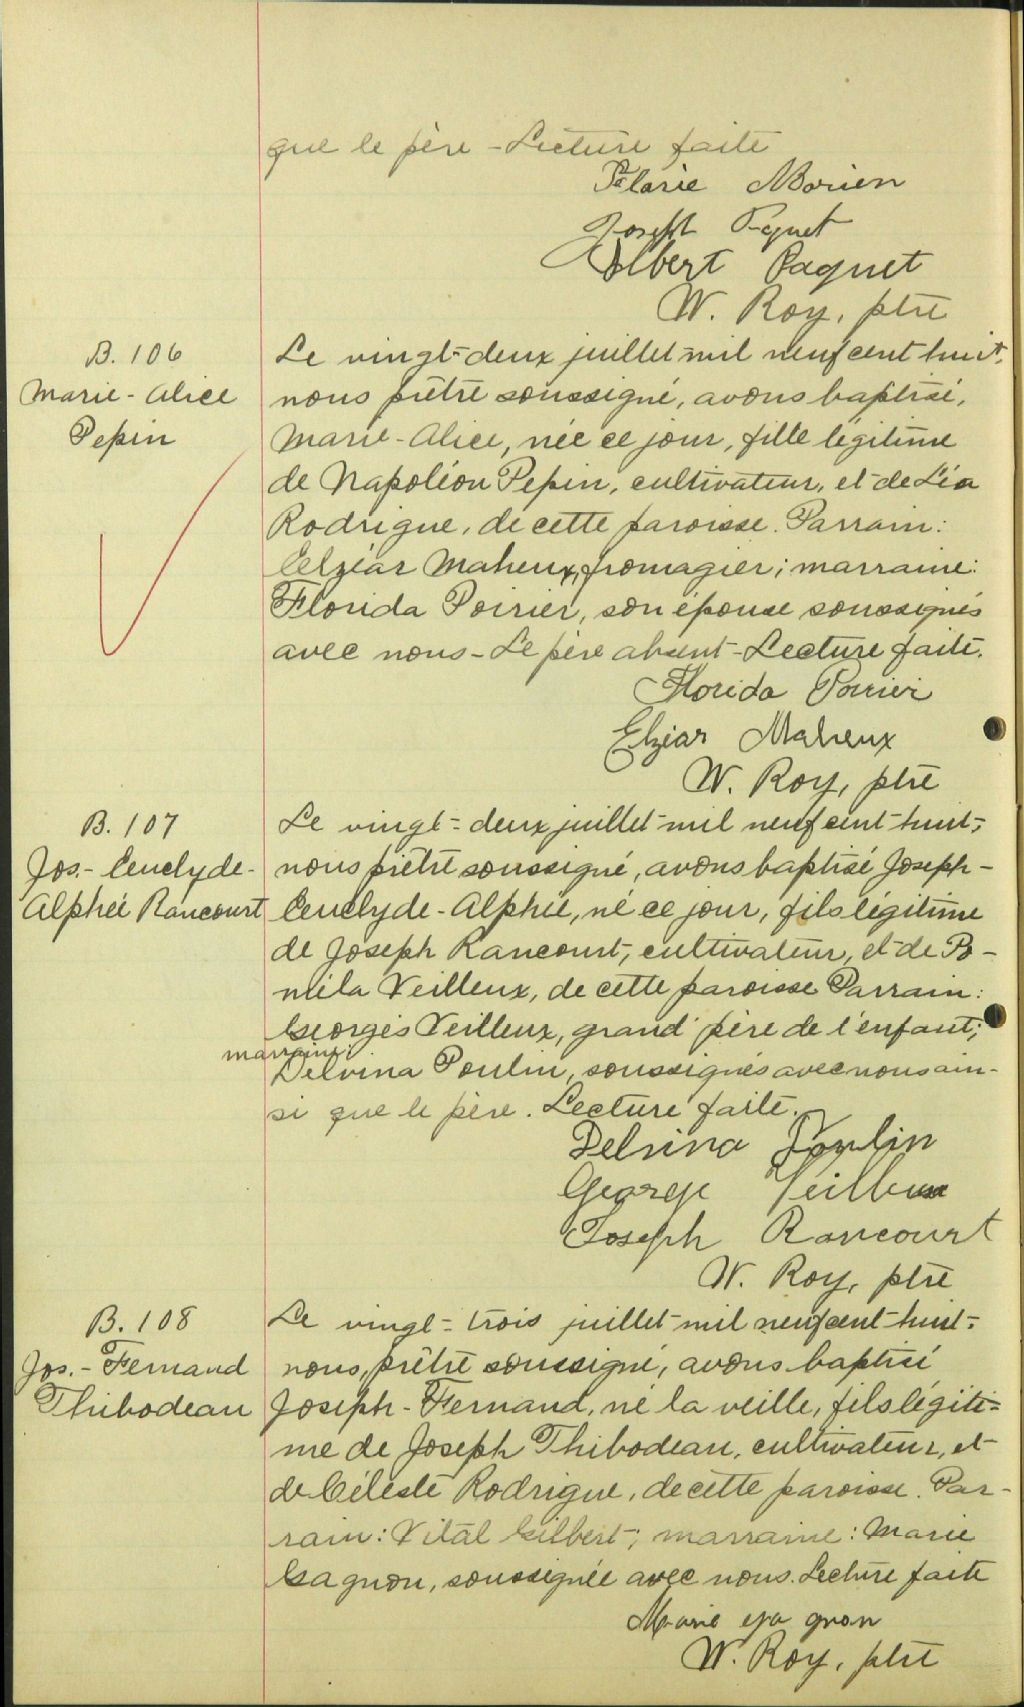 que le père - Lecture faite
Florie Morien
Joseph Paquet
Albert Paquet
W. Roy, ptre
B. 106
Marie-Alice
Pepin
Le vingt-deux juillet mil neuf cent huit,
nous prêtre soussigné, avons baptisé,
Marie-Alice, née ce jour, fille légitime
de Napoléon Pepin, cultivateur, et de Léa
Rodrigue, de cette paroisse. Parrain:
Eelzéar Maheux, fromagier; marraine:
Florida Poirier, son épouse soussignés
avec nous - Le père absent - Lecture faite.
Florida Poirier
Elzéar Maheux
W. Roy, ptre
B. 107
Jos.-Eenclyde-
Alphée Rancourt
Le vingt-deux juillet mil neuf cent huit,
nous prêtre soussigné, avons baptisé Joseph-
Eenclyde-Alphée, né ce jour, fils légitime
de Joseph Rancourt, cultivateur, et de Po-
méla Veilleux, de cette paroisse Parrain:
Georges Veilleux, grand père de l'enfant;
marraine:
Delvina Poulin, soussignés avec nous ain-
si que le père. Lecture faite.
Delvina Poulin
George Veilleux
Joseph Rancourt
W. Roy, ptre
B. 108
Jos.-Fernand
Thibodeau
Le vingt-trois juillet mil neuf cent huit,
nous, prêtre soussigné, avons baptisé
Joseph-Fernand, né la veille, fils légiti-
me de Joseph Thibodeau, cultivateur, et
de Céleste Rodrigue, de cette paroisse. Par-
rain: Vital Gilbert; marraine: Marie
Gagnon, soussignée avec nous. Lecture faite
Marie Gagnon
W. Roy, ptre